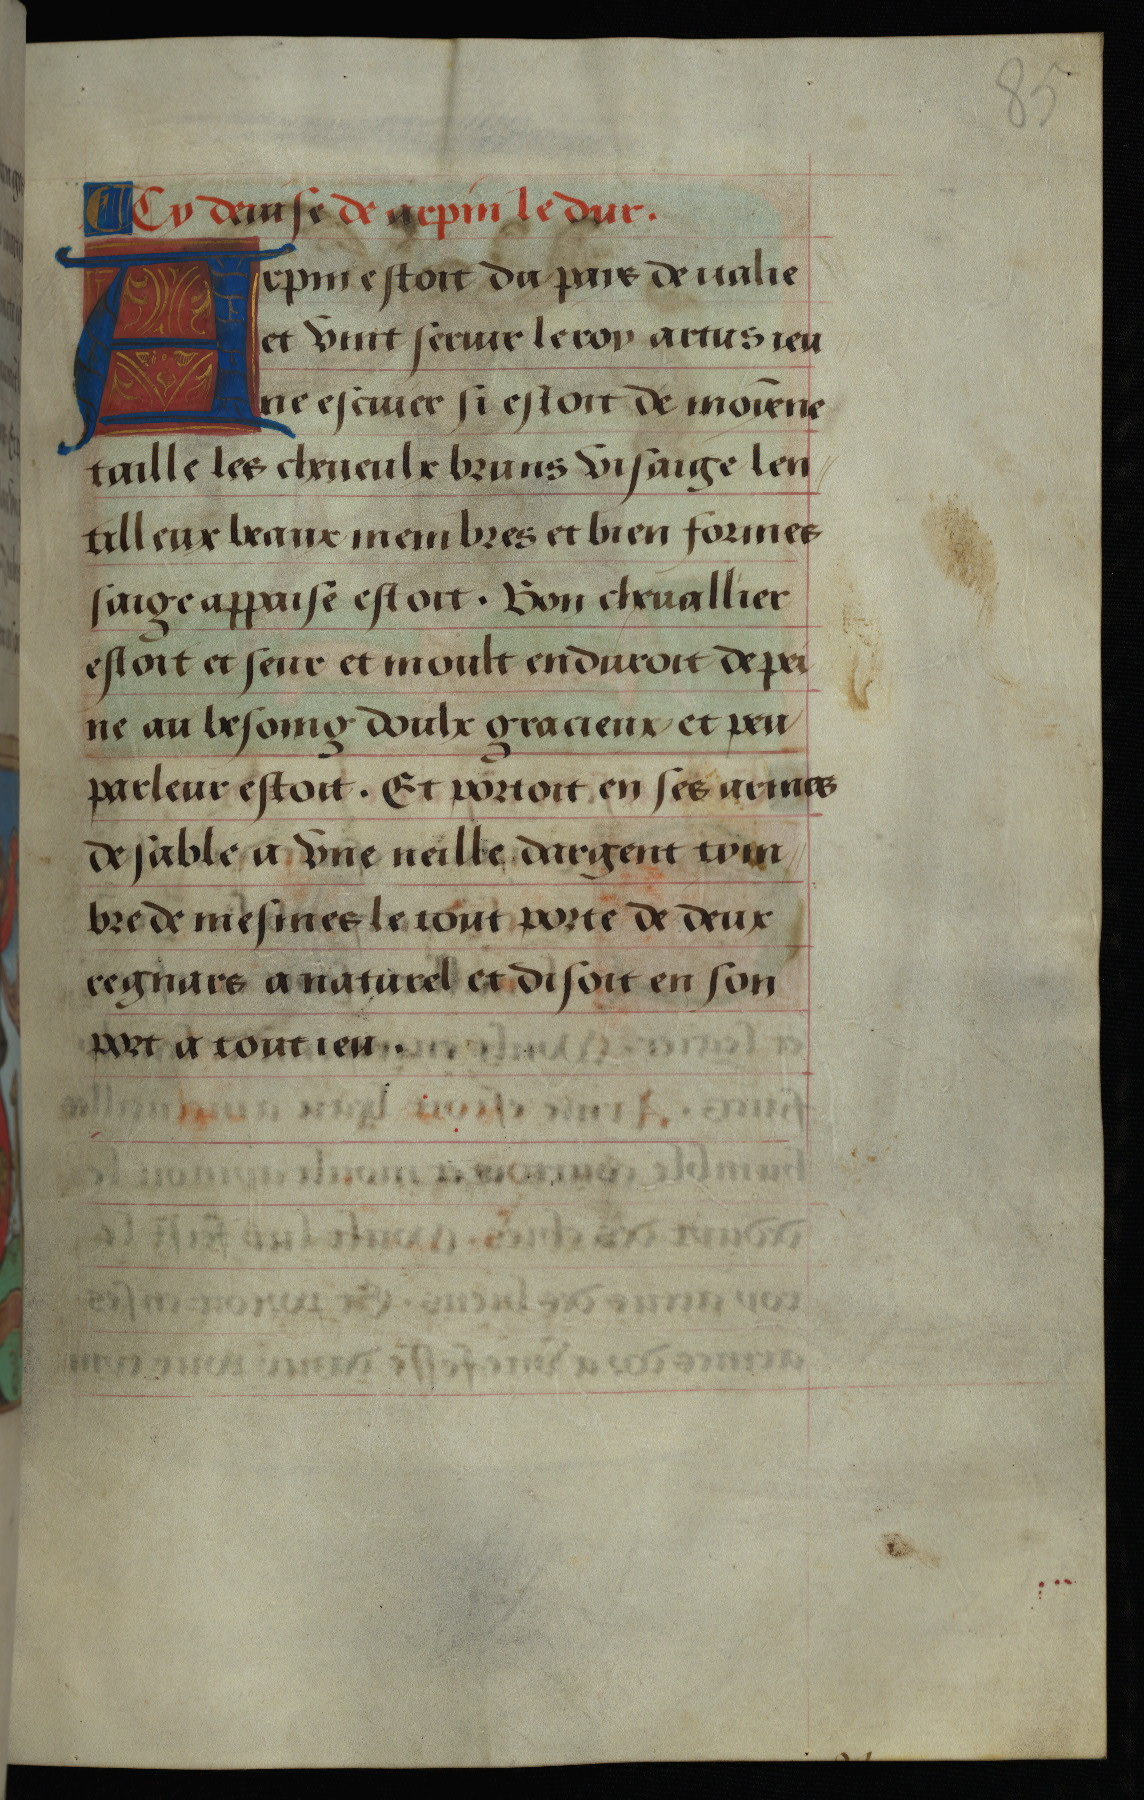 85
Cy deuise de arpin le dur.
Arpin estoit du pais de italie
et vint seruir le roy artus ieu
ne escuier si estoit de moiēne
taille les cheueulx bruns visaige len
tilleux beaux membres et bien formes
saige appaise estoit. Bon cheuallier
estoit et seur et moult enduroit de pei
ne au besoing doulx gracieux et peu
parleur estoit. Et portoit en ses armes
de sable a vne neille dargent tym
bre de mesmes le tout porte de deux
regnars a naturel et disoit en son
port a tout ieu.